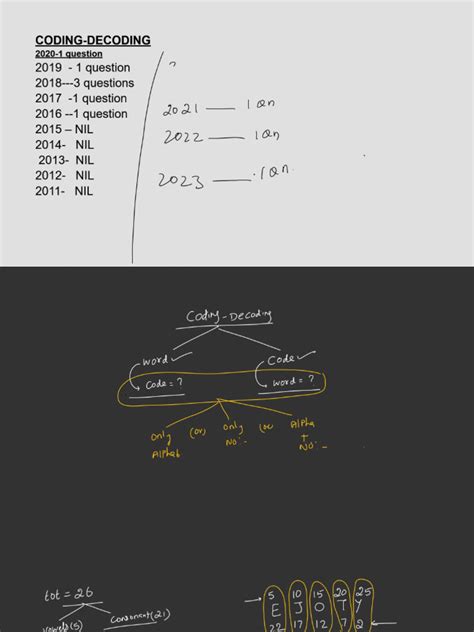 CODING-DECODING
2020-1 question
2019 - 1 question
2018---3 questions
2017 -1 question
2016 --1 question
2015 – NIL
2014- NIL
2013- NIL
2012- NIL
2011- NIL
?
2021 — 1 Qn
2022 — 1 Qn
2023 — 1 Qn.
Coding-Decoding
word ✓ Code ✓
Code = ? word = ?
only (or) only (or Alpha
Alphab No:- +
No:-
tot = 26
vowels(5) consonent(21)
5 10 15 20 25
E J O T Y
22 17 12 7 2